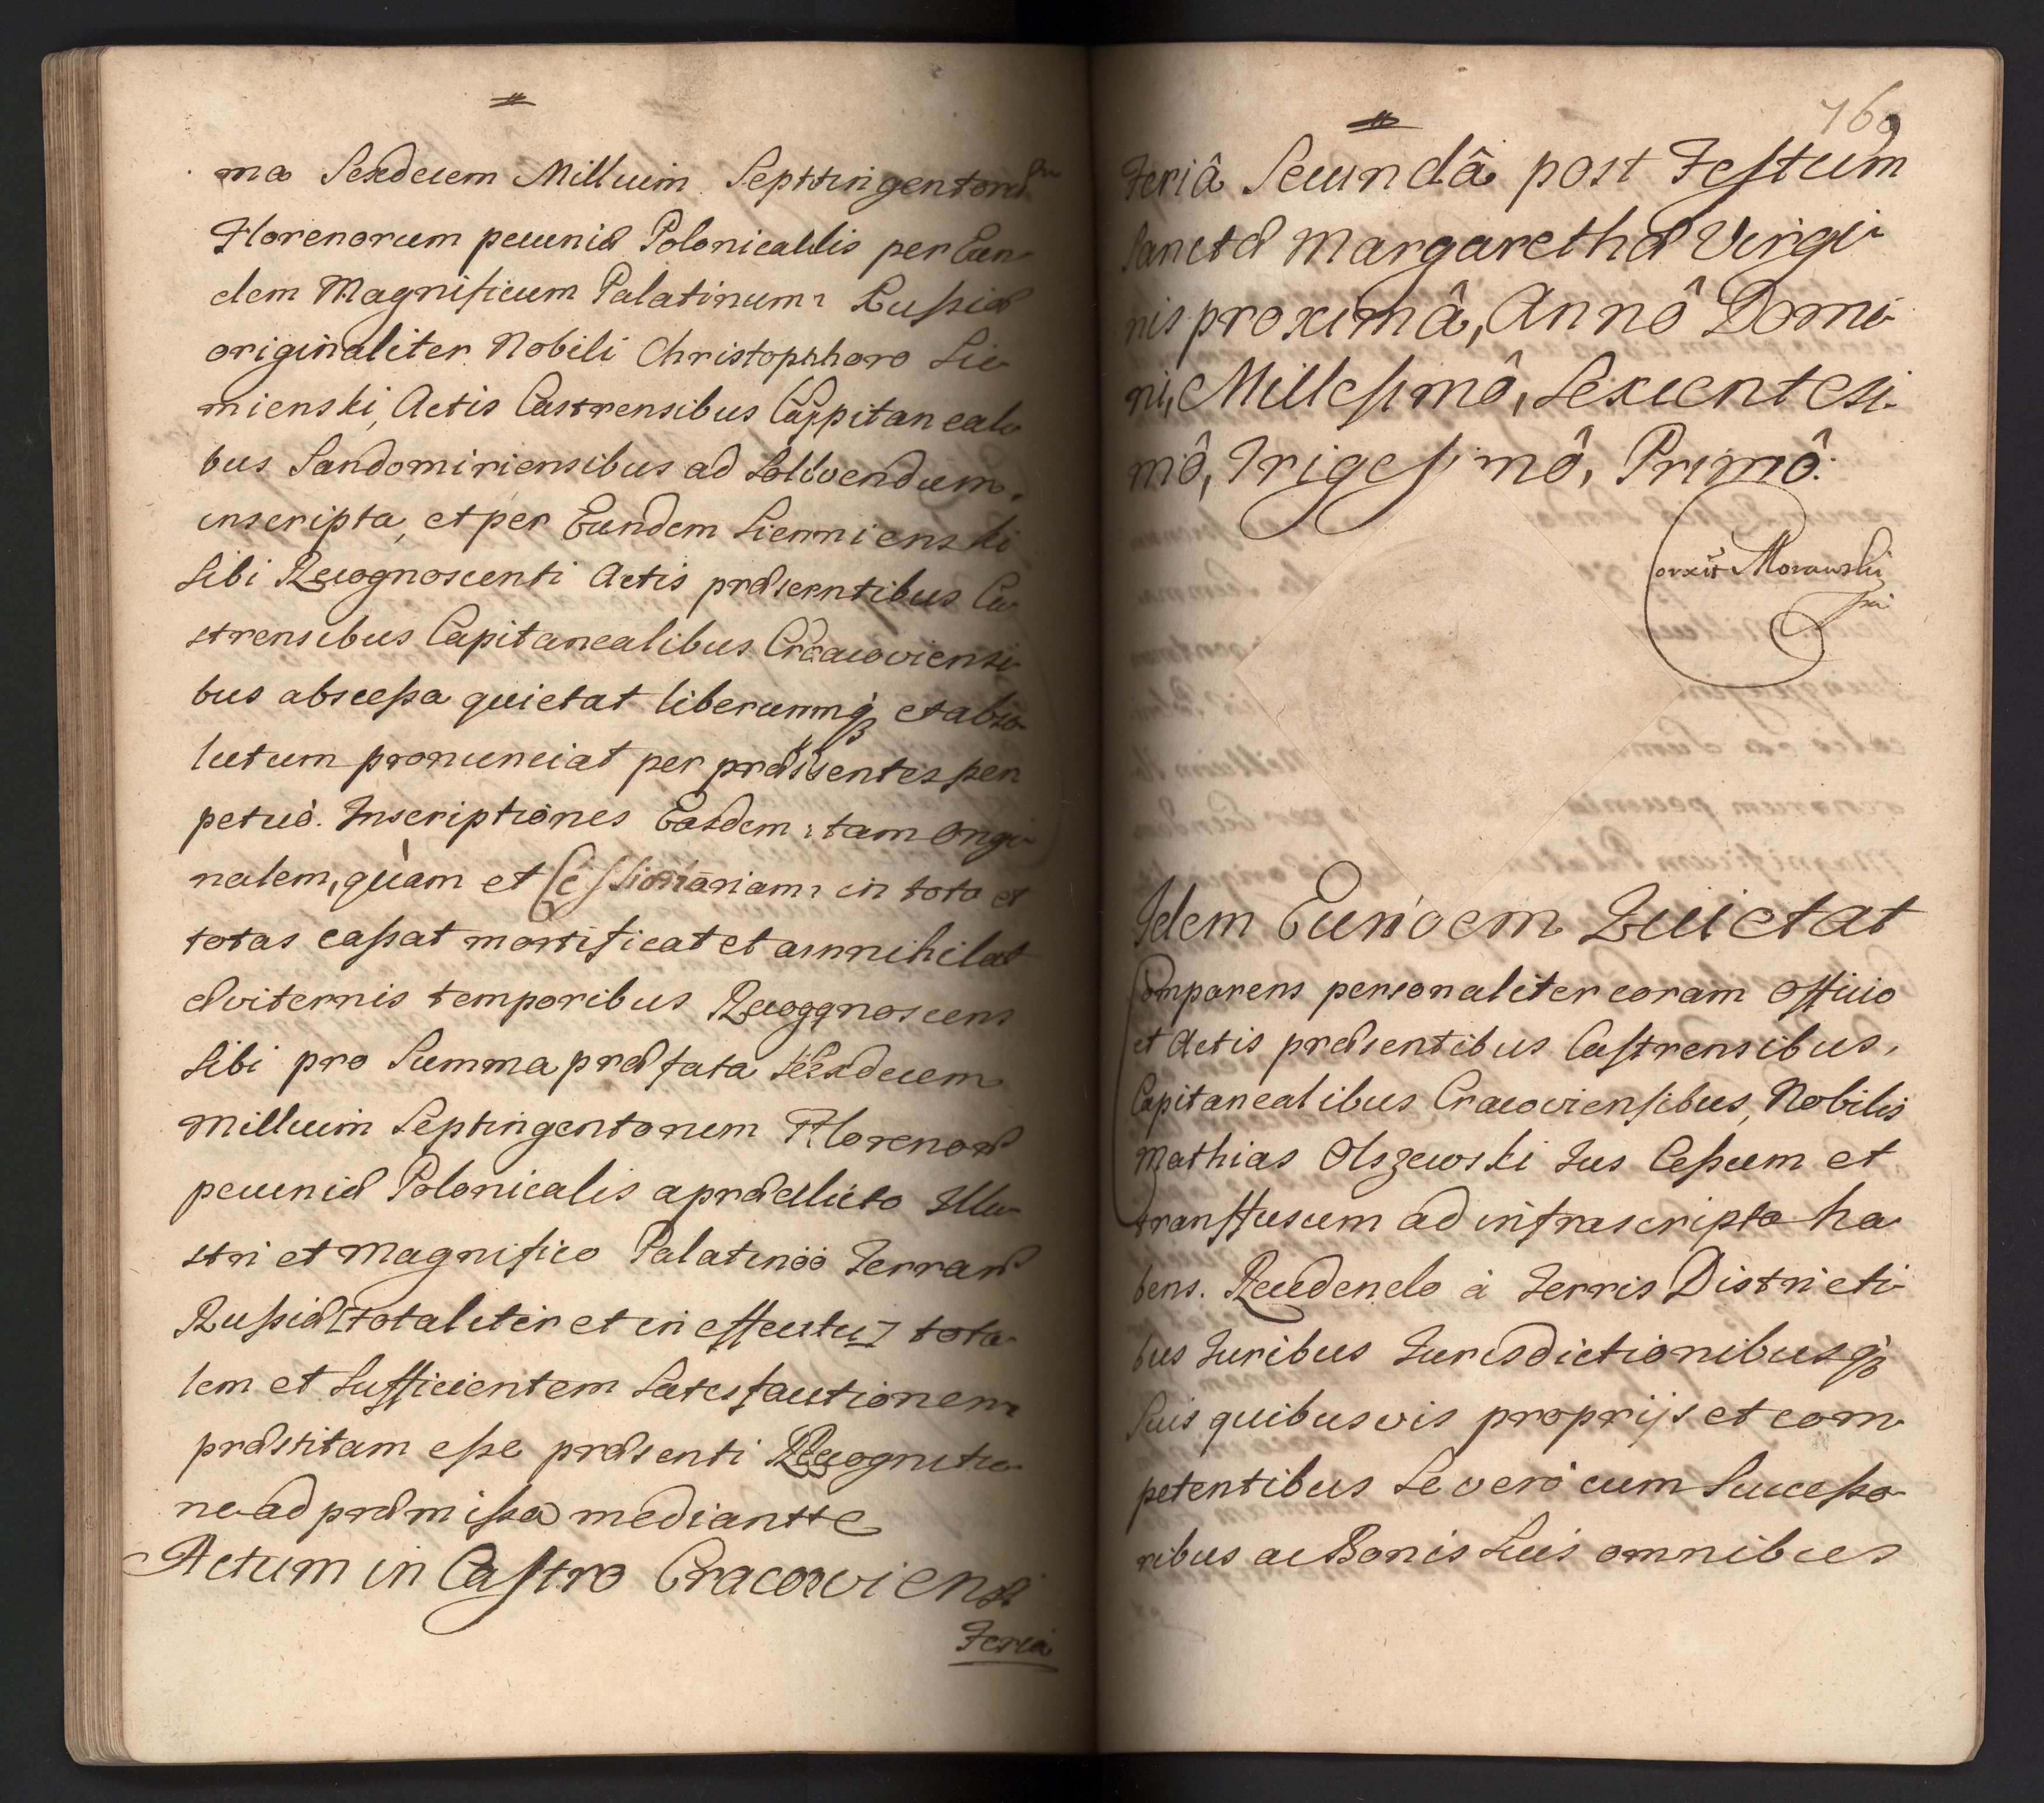 ma Sexdecem Millium Septtingentorũ
Florenorum pecuniæ Polonicallis per Eun
dem Magnificum Palatinum Russiæ
originaliter Nobili Christophhoro Sie
mienski, Actis Castrensibus Cappitaneali
bus Sandomiriensibus ad Sollvendum
inscripta, et per Eundem Siemnienski
Sibi Recognoscenti Actis præserntibus Ca
strensibus Capitanealibus Cracoviensi
bus abscessa quietat liberummq3 et abso
lutum pronunciat per præssentes per
petuò. Inscriptiones Easdem tam Origi
nalem, quàm et Cessionariam in toto et
totas cassat mortificat et annnihilat
æviternis temporibus Recoggnoscens
Sibi pro Summa præfata Sexdecem
Millium Septingentorum Florenorũ
pecuniæ Polonicalis a prædicto Illu
stri et Magnifico Palatinoo Terrarũ
Russiæ [totaliter et in effectu] tota
lem et Sufficientem Satisfactionem
præstitam esse præsenti Recognitio
ne ad præmissa mediantte
Actum in Castro Cracoviensi
Feria
760
Feriâ Secundâ post Festum
Sanctæ Margarethæ Virgi
nis proximâ, Annô Domi
ni, Millesimô, Sexcentesi
mô, Trigesimô, Primô.
corxit Morawski
Idem Eundem Quietat
Comparens personaliter coram Officio
et Actis præsentibus Castrensibus,
Capitanealibus Cracoviensibus, Nobilis
Mathias Olszewski Jus Cessum et
transfusum ad infrascripta ha
bens. Recedendo à Terris Districti
bus Juribus Jurisdictionibusq3
Suis quibusvis proprijs et com
petentibus Se verò cum Successo
ribus ac Bonis Suis omnibus